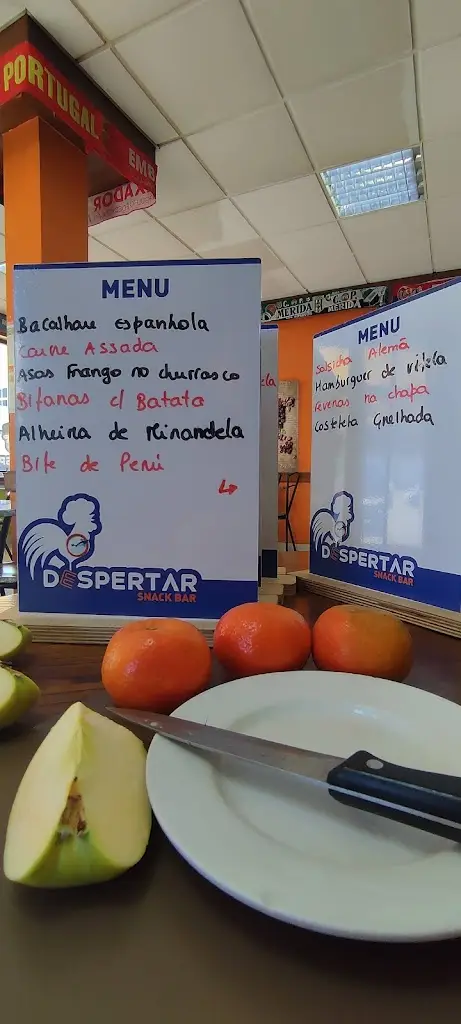 PORTUGAL
MENU
Bacalhau espanhola
Carne Assada
Asas Frango no churrasco
Bifanas c/ Batata
Alheira de Mirandela
Bife de Perú
DESPERTAR
SNACK BAR
MERIDA
MERIDA
MENU
Salsicha Alemã
Hamburguer de vitela
Fevenas na chapa
Costeleta Grelhada
DESPERTAR
SNACK BAR